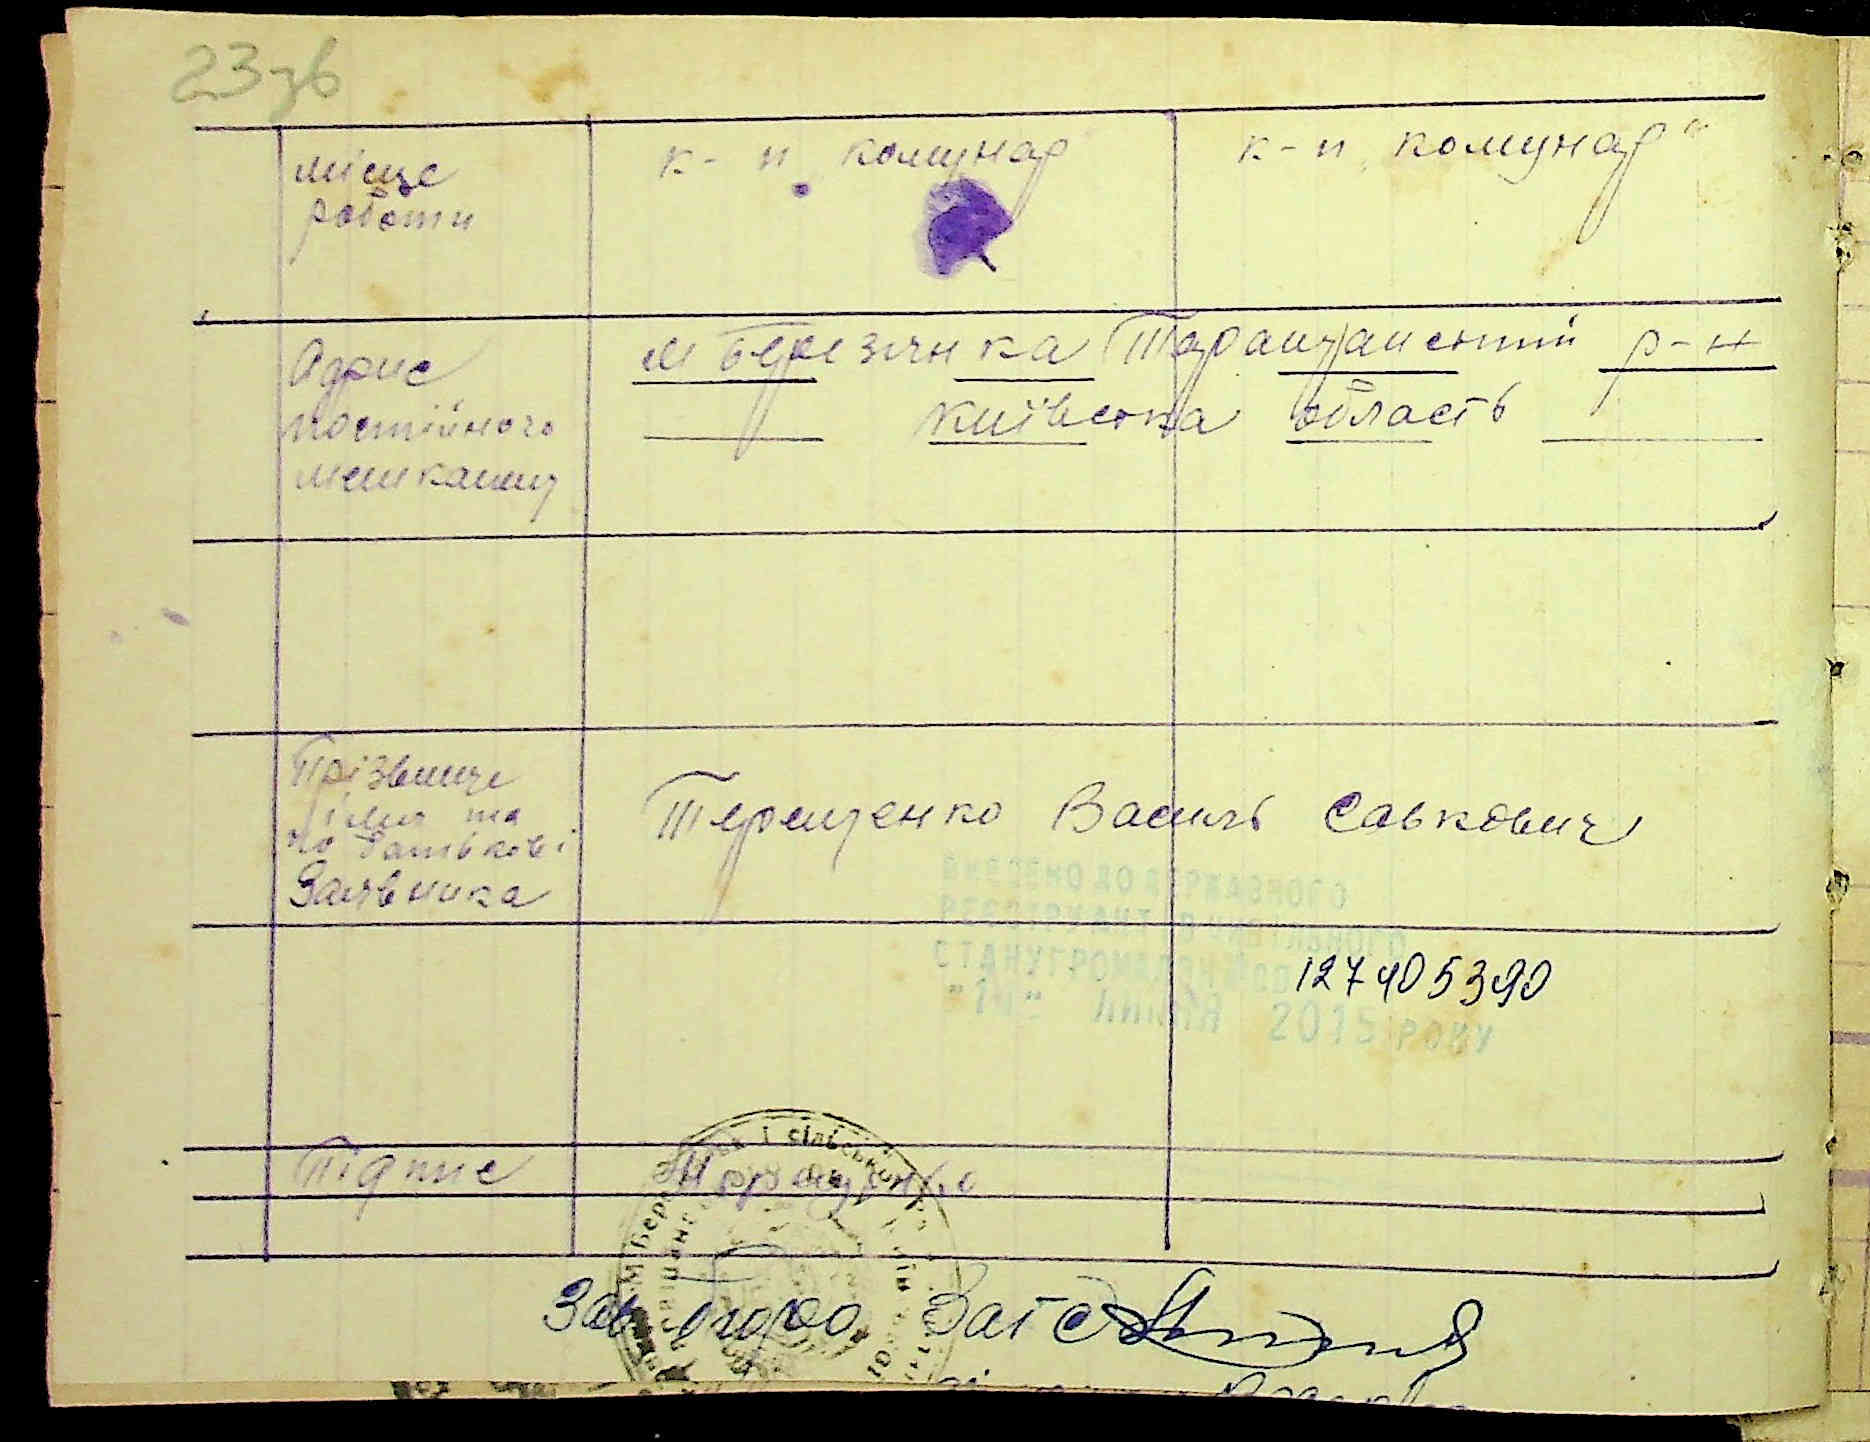 23зв
місце роботи
к-п „комунар"
к-п „комунар"
Адрис постійного мешканцу
м Березянка Таращанский р-н
Київська область
Прізвище імя та по батькові Заявника
Терещенко Василь Савкович
ВНЕСЕНО ДО ДЕРЖАВНОГО
РЕЄСТРУ АКТІВ ЦИВІЛЬНОГО
СТАНУ ГРОМАДЯН
127405390
ЛИПНЯ 2015 РОКУ
Підпис
Зав бюро Загс